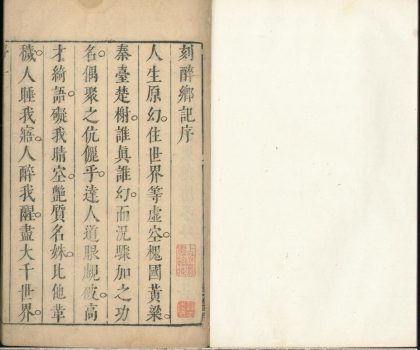 刻醉鄉記序
人生原幻住世界等虛空槐國黃粱
秦臺楚榭誰眞誰幻而況驟加之功
名偶聚之伉儷乎達人道眼覷破高
才綺語礙我晴空艷質名姝比他葷
穢人睡我寤人醉我醒盡大千世界